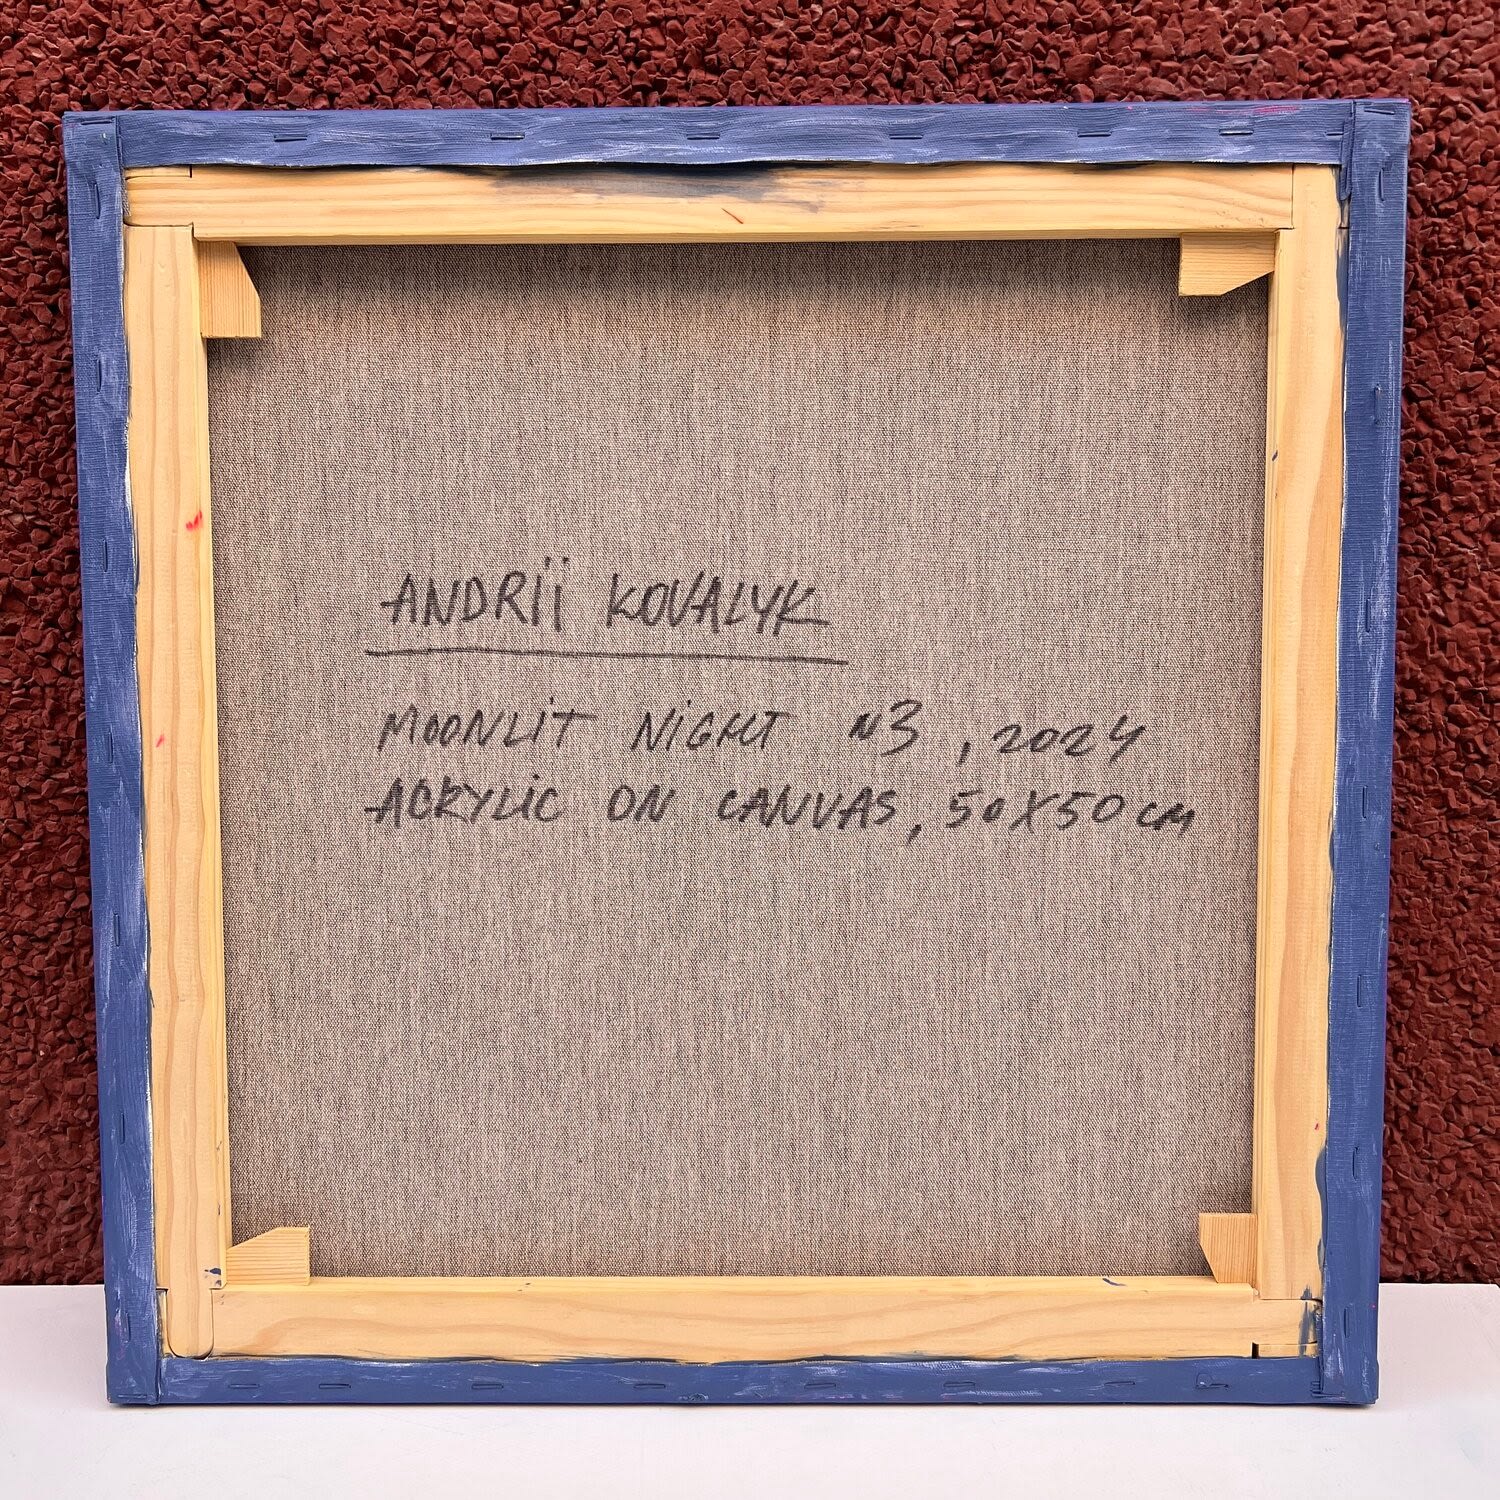 ANDRIÏ KOVALYK
MOONLIT NIGHT N3, 2024
ACRYLIC ON CANVAS, 50X50 cm